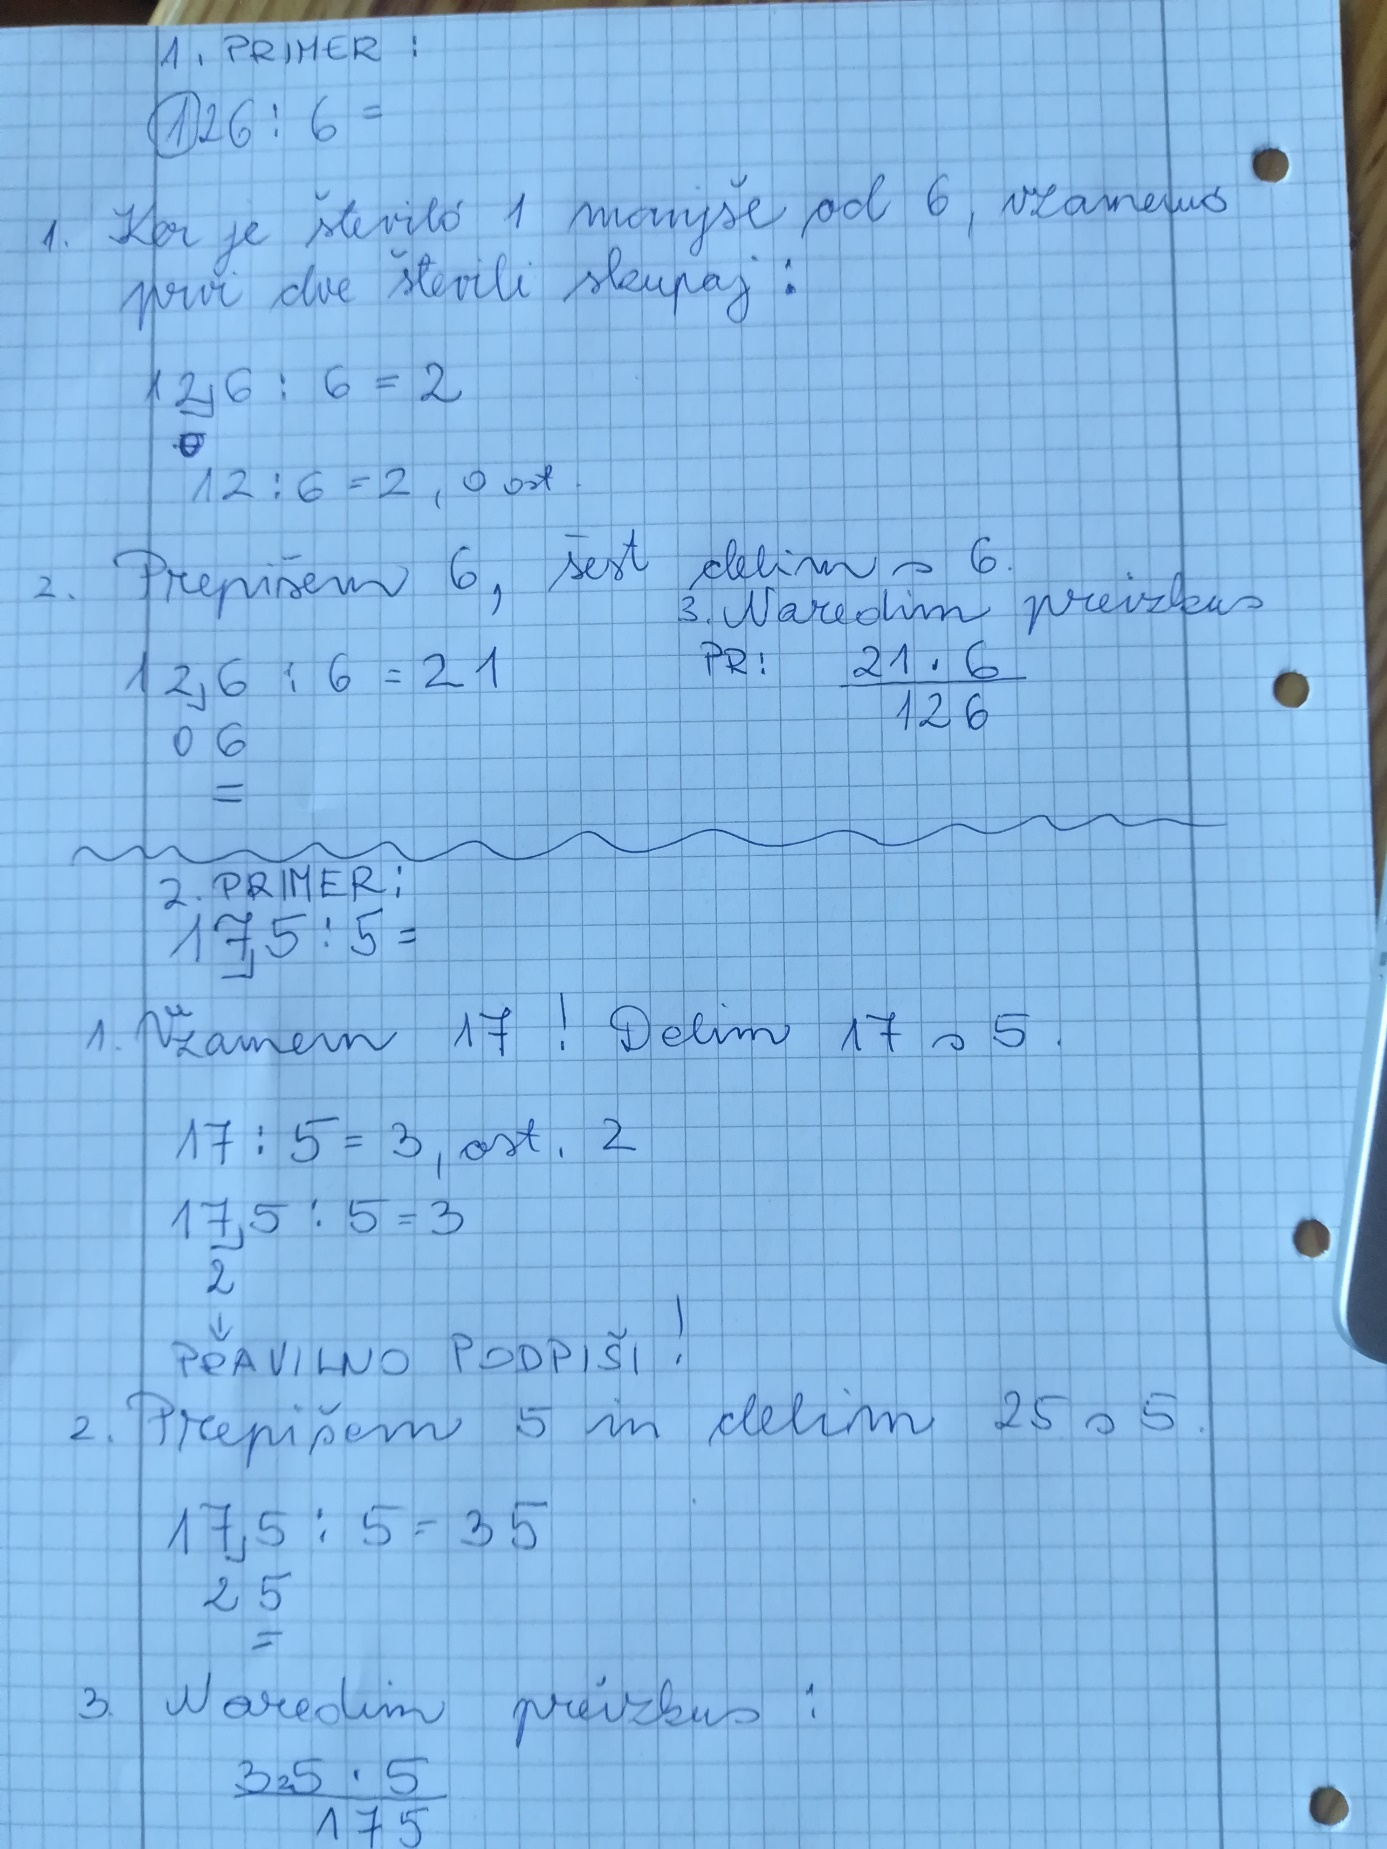 1. PRIMER:
126 : 6 =
1. Ker je število 1 manjše od 6, vzamemo
prvi dve števili skupaj:
12,6 : 6 = 2
0
12 : 6 = 2, 0 ost.
2. Prepišem 6, šest delim s 6.
3. Naredim preizkus
12,6 : 6 = 21
06
=
PR: 21 · 6
126
2. PRIMER:
17,5 : 5 =
1. Vzamem 17! Delim 17 s 5.
17 : 5 = 3, ost. 2
17,5 : 5 = 3
2
↓
PRAVILNO PODPIŠI!
2. Prepišem 5 in delim 25 s 5.
17,5 : 5 = 35
25
=
3. Naredim preizkus:
3 2 5 · 5
175